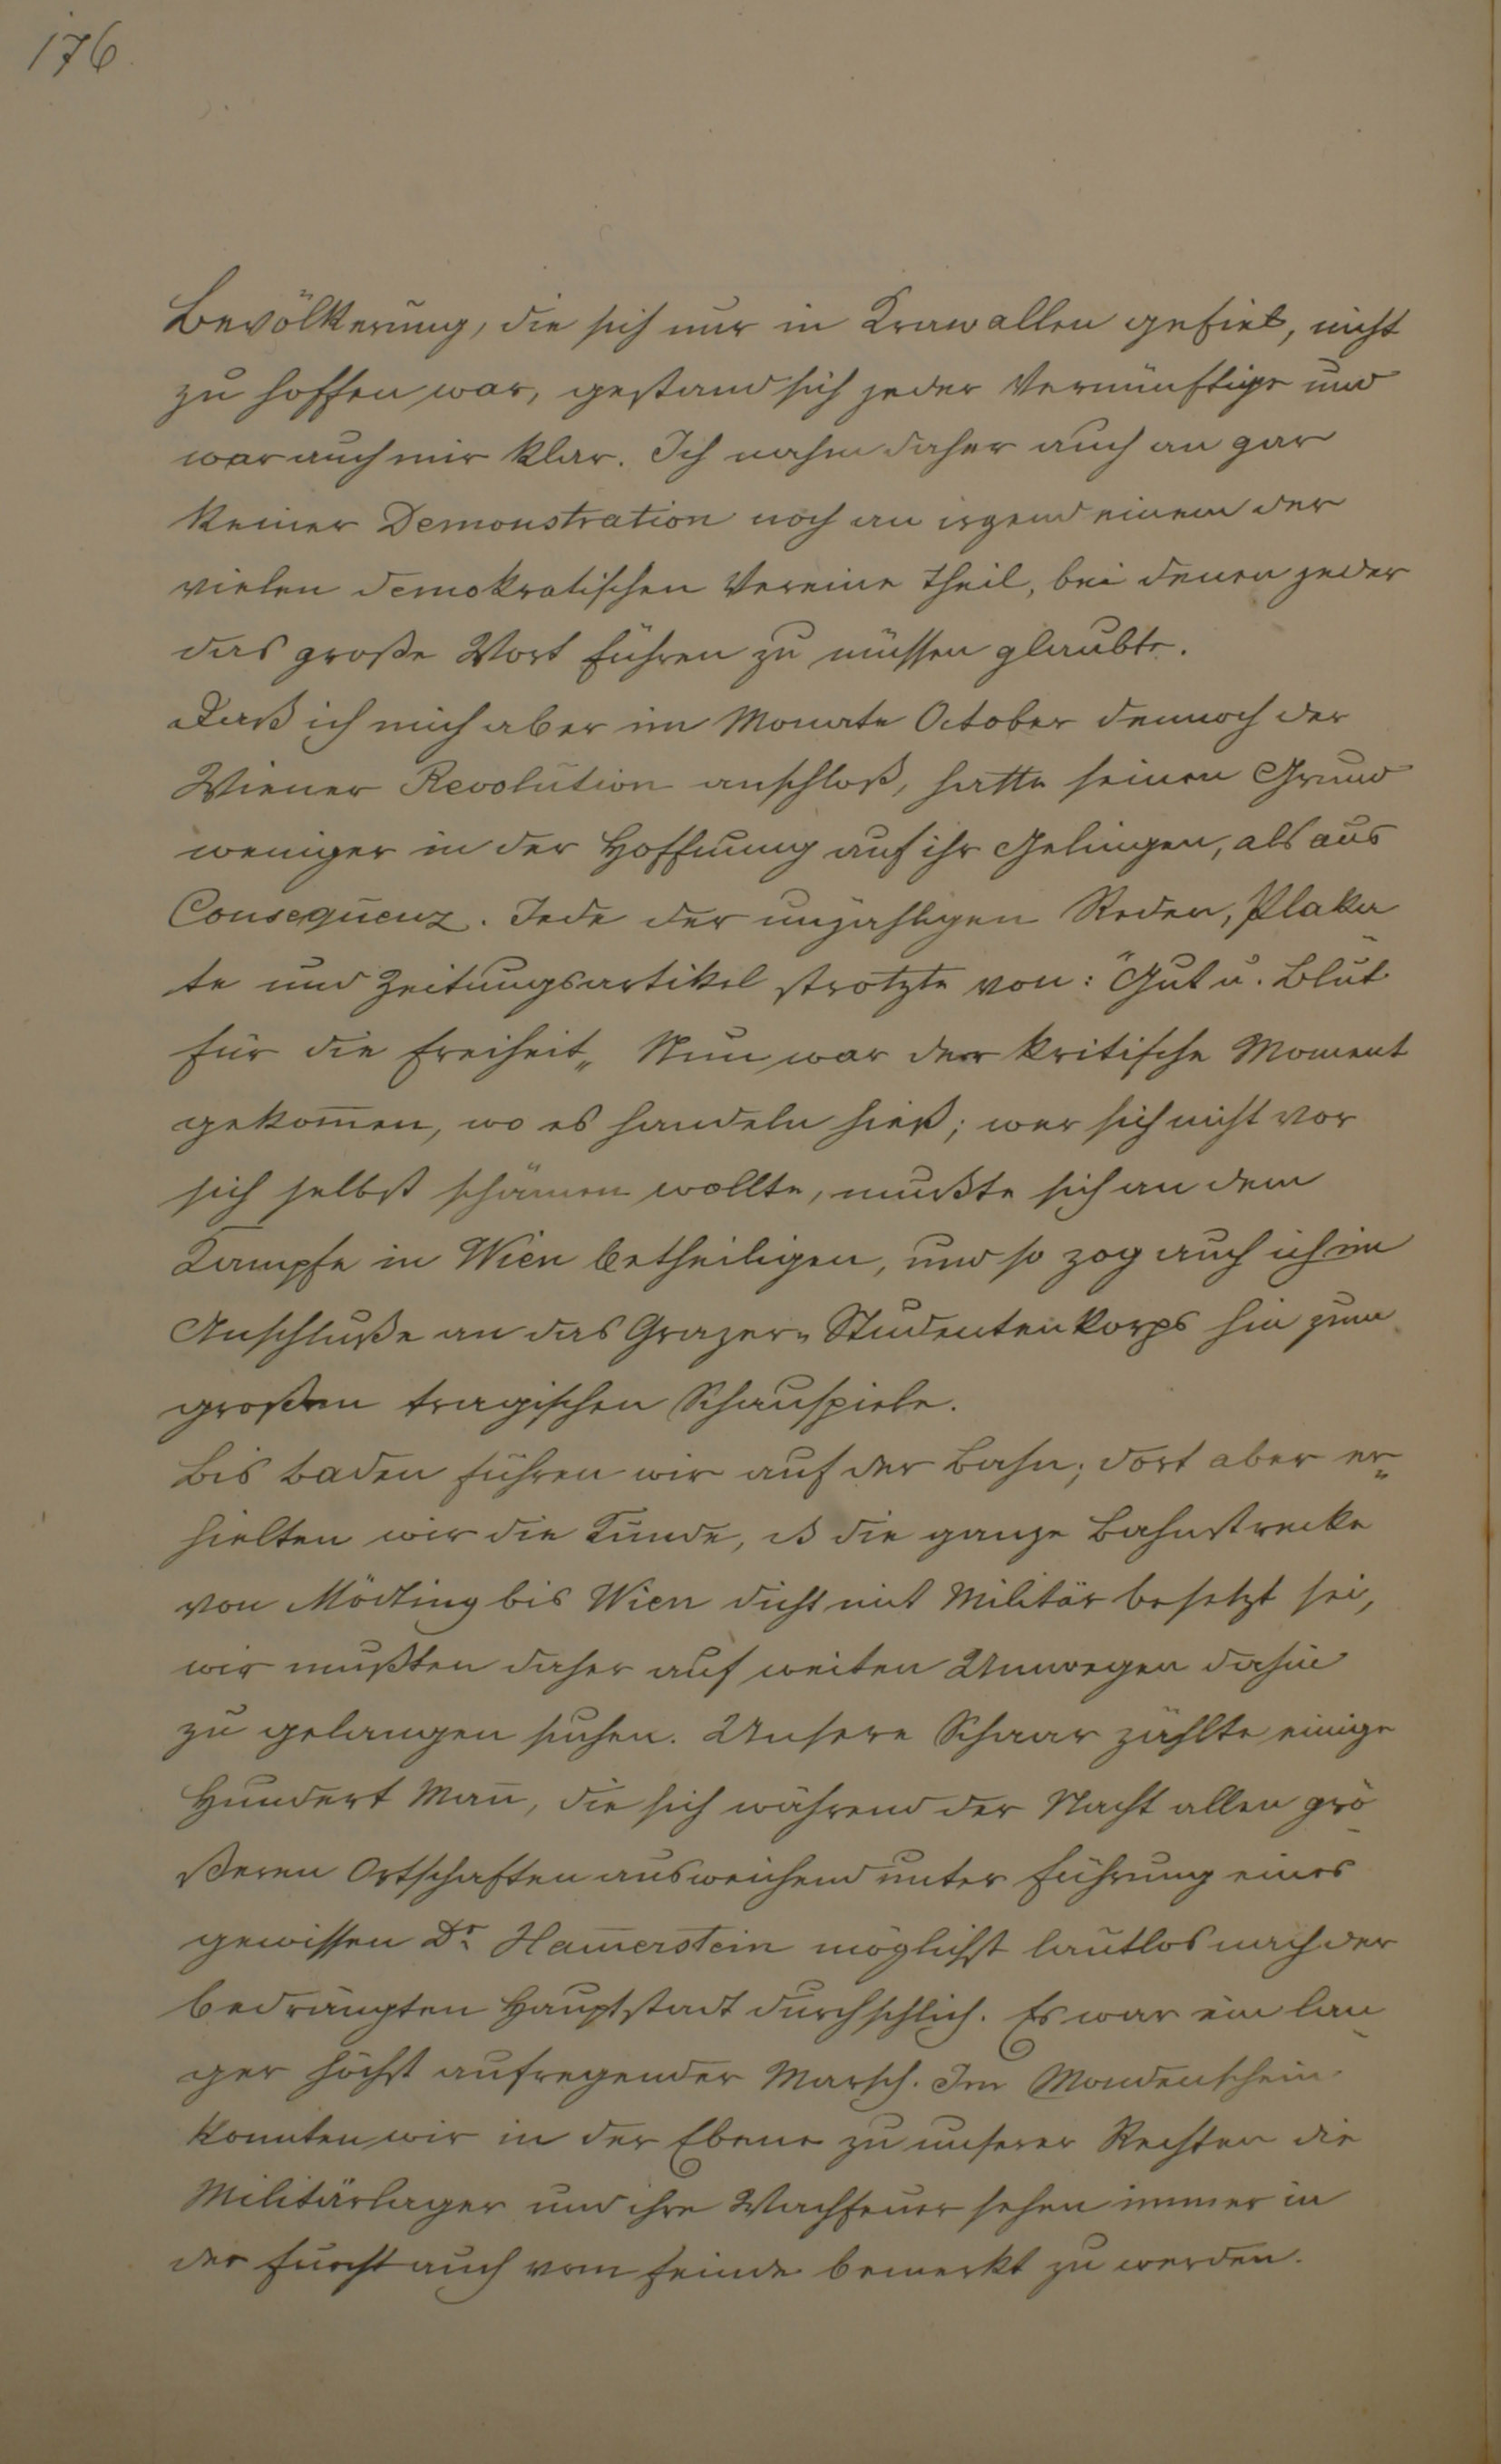 176.
Bevölkerung, die sich nur in Krawallen gefiel, nicht
zu hoffen war, gestand sich jeder Vernünftige und
war auch mir klar. Ich nahm daher auch an gar
keiner Demonstration noch an irgend einem der
vielen demokratischen Vereine theil, bei denen jeder
das große Wort führen zu müssen glaubte.
Daß ich mich aber im Monate October dennoch der
Wiener Revolution anschloß, hatte seinen Grund
weniger in der Hoffnung auf ihr Gelingen, als aus
Consequenz. Jede der unzähligen Reden, Plaka
te und Zeitungsartikel strotzte von: "Gut u. Blut
für die Freiheit„ Nun war der kritische Moment
gekom̅en, wo es handeln hieß; wer sich nicht vor
sich selbst schämen wollte, mußte sich an dem
Kampfe in Wien betheiligen, und so zog auch ich im
Anschluße an das Grazer= Studentenkorps hin zum
großen tragischen Schauspiele.
Bis Baden fuhren wir auf der Bahn; dort aber er=
hielten wir die Kunde, ß die ganze Bahnstrecke
von Mödling bis Wien dicht mit Militär besetzt sei,
wir mußten daher auf weiten Umwegen dahin
zu gelangen suchen. Unsere Schaar zählte einige
Hundert Man̅, die sich während der Nacht allen grö-
ßeren Ortschaften ausweichend unter Führung eines
gewissen Dr. Ham̅erstein möglichst lautlos nach der
bedrängten Hauptstadt durchschlich. Es war ein lan-
ger höchst aufregender Marsch. Im Mondenschein
konnten wir in der Ebene zu unserer Rechten die
Militärlager und ihre Wachfeuer sehen immer in
der Furcht auch vom Feinde bemerkt zu werden.